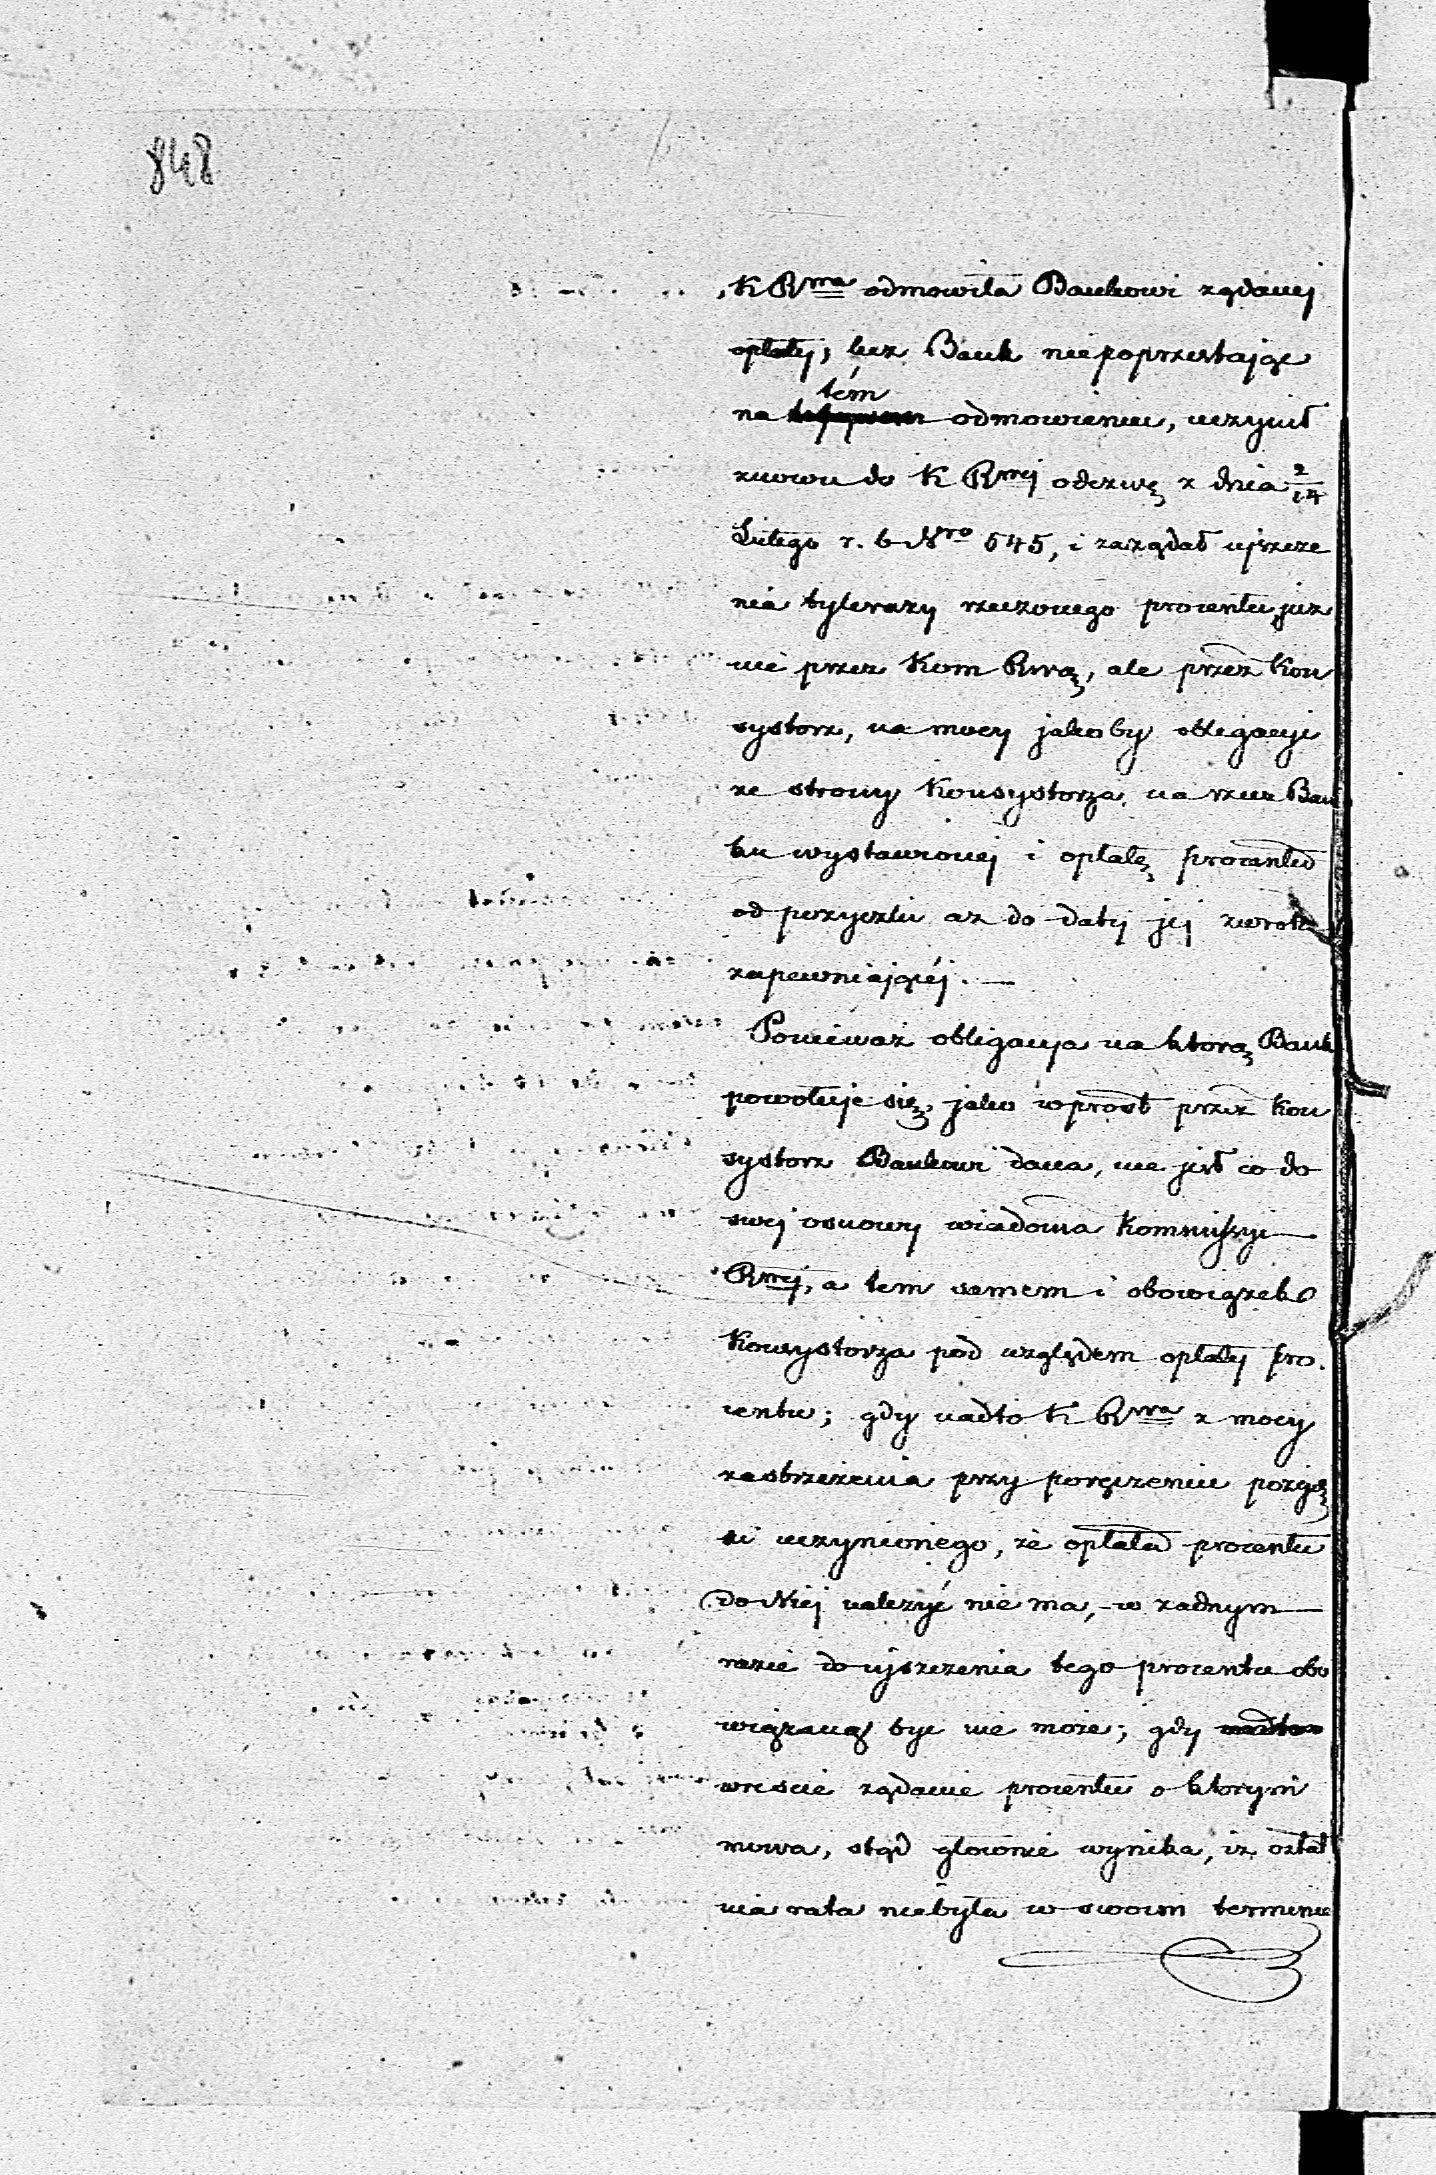 848
K Rwa odmowiła Bankowi żądanej
opłaty, lecz Bank niepoprzestając
tém
na odmowieniu, uczynił
znowu do K Rwej odezwę z dnia 2/14
Lutego r. b Nro 545, i zażądał ujszcze
nia tylerazy rzeczonego procentu, już
nie przez Kom Rwą, ale przez Kon
systorz, na mocy jakoby obligacyi
ze strony Konsystorza, na rzecz Ban
ku wystawionej i opłatę procentu
od pożyczki aż do daty jej zwrotu
zapewniającéj. —
Ponieważ obligacya na którą Bank
powołuje się, jako wprost przez Kon
systorz Bankowi dana, nie jest co do
swej osnowy wiadoma Kommissyi —
Rwej, a tem samem i obowiązek
Konsystorza pod względem opłaty pro
centu; gdy nadto K Rwa z mocy
zastrzeżenia przy poręczeniu pożycz
ki uczynionego, że opłata procentu
do Niej należyć nie ma, w żadnym —
razie do ujszczenia tego procentu obo
wiązaną być nie może; gdy nadto
wreście żądanie procentu o którym
mowa, stąd głownie wynika, iż ostat
nia rata niebyła w swoim terminie